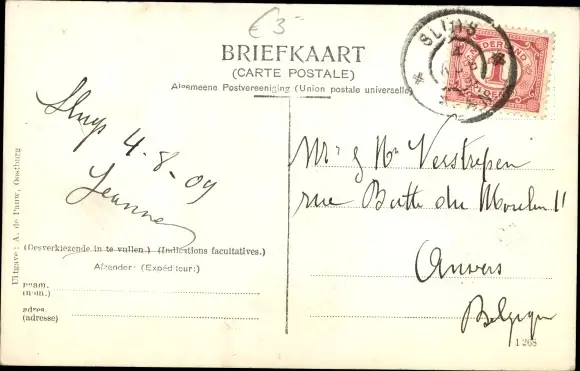 €3-
SLUIS
NEDERLAND
1
BRIEFKAART
(CARTE POSTALE)
Algemeene Postvereeniging (Union postale universelle)
Sluys 4-8-09
Jeanne
Mr & Me Verstrepen
rue Butte du Moulin 11
Anvers
Belgique
(Desverkiezende in te vullen.) (Indications facultatives.)
Afzender: (Expéditeur:)
naam.
(nom.)
adres.
(adresse)
Uitgave: A. de Pauw, Oostburg
1268